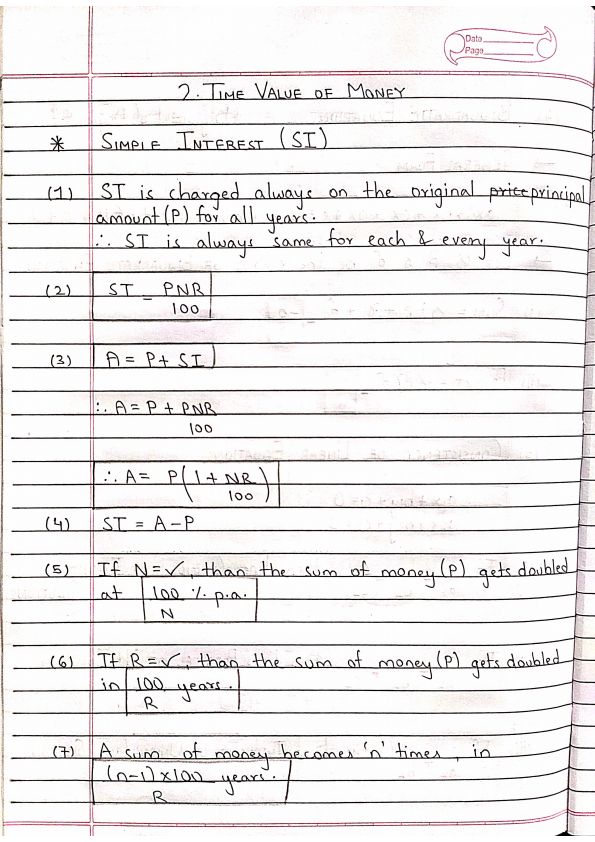 Date
Page
2. TIME VALUE OF MONEY
* SIMPLE INTEREST (SI)
(1) SI is charged always on the original price principal
amount (P) for all years.
∴ SI is always same for each & every year.
(2) SI = PNR
100
(3) A = P + SI
∴ A = P + PNR
100
∴ A = P(1 + NR)
100
(4) SI = A - P
(5) If N = ✓, than the sum of money (P) gets doubled
at 100 % p.a.
N
(6) If R = ✓, than the sum of money (P) gets doubled
in 100 years.
R
(7) A sum of money becomes 'n' times, in
(n-1) x 100 years.
R